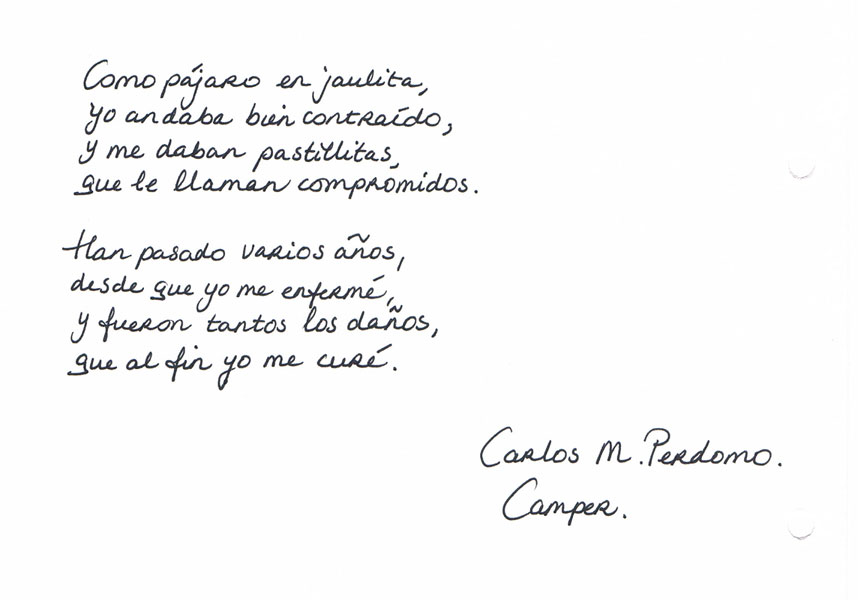 Como pájaro en jaulita,
yo andaba bien contraído,
y me daban pastillitas,
que le llaman compromidos.
Han pasado varios años,
desde que yo me enfermé,
y fueron tantos los daños,
que al fin yo me curé.
Carlos M. Perdomo.
Camper.